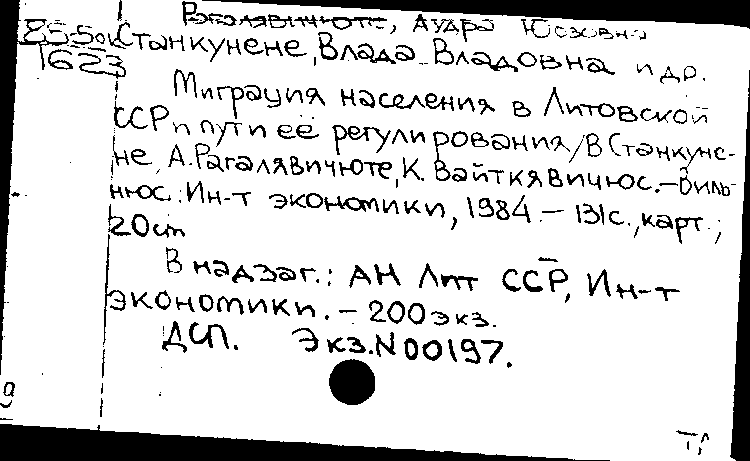 Рагалявичюте, Аудра Юозовна
255ок Станкунене, Влада Владовна и др.
1623
Миграция населения в Литовской
ССР и пути её регулирования/В Станкуне-
не, А.Рагалявичюте, К. Вайткявичюс.–Виль-
нюс: Ин-т экономики, 1984.– 131с., карт.;
20см
В надзаг.: АН Лит ССР, Ин-т
экономики. – 200 экз.
ДСП. Экз.N00197.